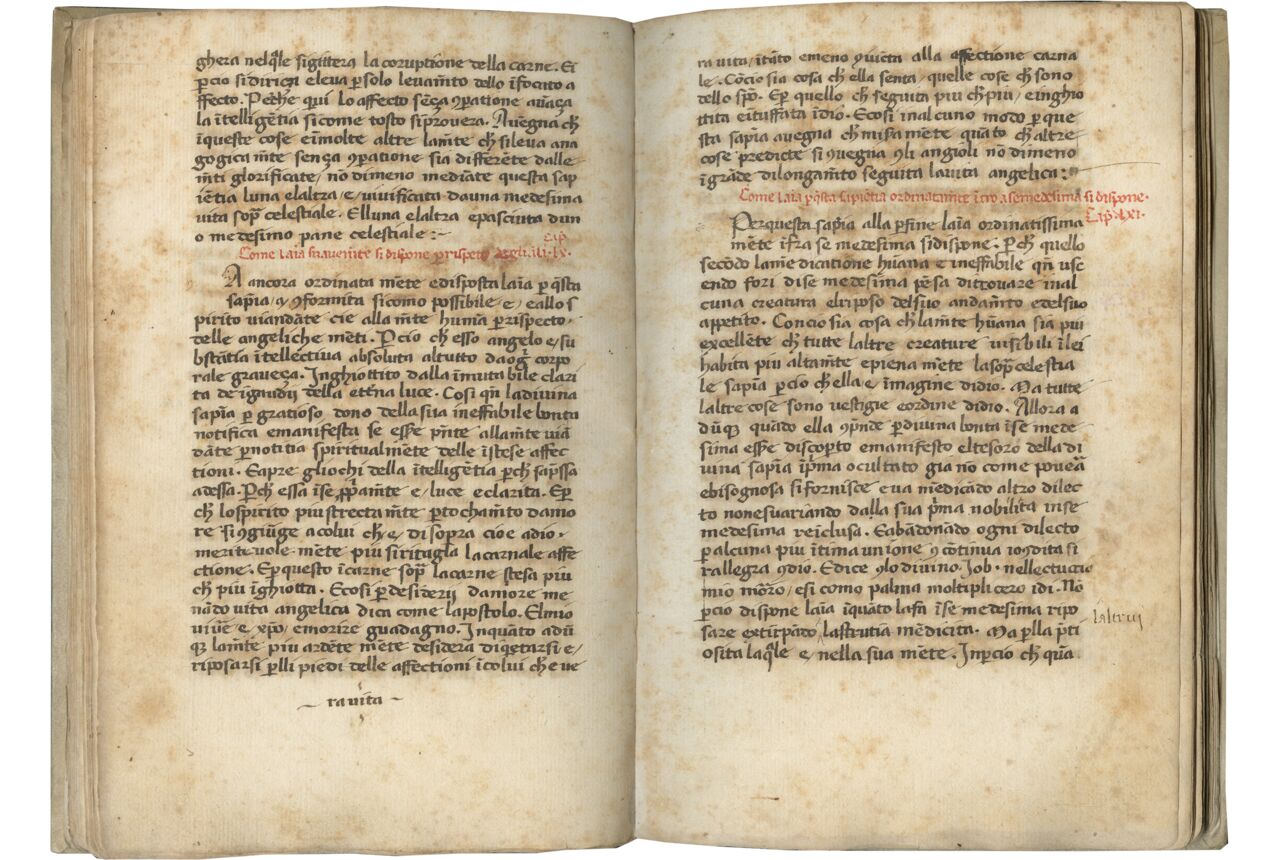 ghera nelq̃le sigittera la coruptione della carne. Et
p̱cio sidiriça eleva p̱solo levam̃to dello ĩfocato a
ffecto. Perche qui lo affecto sença ꝯp̱atione avãça
la ĩtelligẽtia sicome tosto siprovera. Avẽgna cħ
ĩqueste cose eĩmolte altre lam̃te cħ sileva ana
gogica m̃te sença ꝯp̱atione sia differẽte dalle
m̃ti glorificate, nõdimeno mediãte questa sap
iẽtia luna elaltra e, vivificata dauna medesima
vita sop̃ celestiale. Elluna elaltra epasciuta dun
o medesimo pane celestiale:~
Cap̃.
Come laĩa suavem̃te si dispone ꝑrispeto degli .lx.
A ancora ordinata m̃ete edisposta laĩa p̱ q̃sta
sap̃ia, ꝯformita sicomo possibile e, eallo s
pirito viandãte cie alla m̃te humãa p̱rispecto
delle angeliche m̃eti. P̱cio cħ esso angelo e, su
bstãtia ĩtellectiva absoluta altutto da og̃ corpo
rale graveça. Inghiottito dalla ĩmutabile clari
ta de ĩgaudij della etẽna luce. Cosi qñ ladivina
sap̃ia p̱ gratioso dono della sua ineffabile bonta
notifica emanifesta se ess̃e p̃nte allam̃te viã
dãte p̱notitia spiritualm̃ete delle ĩstese affec
tioni. Eapre gliochi della ĩtelligẽtia p̱cħ sap̃ssa
adessa. P̱cħ essa ĩse pp̃am̃te e, luce eclarita. Ep̱
cħ lospirito piu strecta m̃te p̱tochamẽto damo
re si ꝯgiũge acolui cħ e, di sopra cioe adio.
merite vole m̃ete piu siritugla lacarnale affe
ctione. Ep̱questo ĩcarne sop̃ lacarne stesa piu
cħ piu ĩghiotta. Ecosi p̱desiderij damore me
nãdo vita angelica dica come lapostolo. Elmio
viv̄e e, xp̃o, emorire guadagno. Inquãto adũ
q̃ lam̃te piu ardẽte m̃ete desidera diq̃etarsi e,
riposarsi p̱lli piedi delle affectioni ĩcolui che ve
~ ra vita ~
ra vita, itãto emeno ꝯiũcta alla affectione carna
le. Cõcio sia cosa cħ ella senta, quelle cose cħ sono
dello sp̃o. Ep̱ quello cħ seguita piu cħpiu, einghio
ttita eĩtuffata ĩdio. Ecosi inalcuno modo p̱ que
sta sap̃ia avegna cħ misam̃ete quãto cħ altre
cose predicte si ꝯvegna ꝯli angioli nõ dimeno
ĩgrãde dilongam̃to seguita lavita angelica:~
Come laĩa p̱q̃sta sapiẽtia ordinatam̃te ĩtro asemedesima si dispone.
Cap̃. lxi.
Perquesta sap̃ia alla p̱fine laĩa ordinatissima
m̃ete ĩfra se medesima sidispone. P̱cħ quello
secõdo lamedicatiõne hũana e ineffabile qñ usc
endo fori dise medesima p̱esa ditrovare inal
cuna creatura elriposo delsuo andam̃to edelsuo
appetito. Concio sia cosa cħ lam̃te hũana sia piu
excellẽte cħ tutte laltre creature visibili ĩlei
habita piu altam̃te epiena m̃ete lasop̃ celestia
le sap̃ia p̱cio cħ ella e, imagine didio. Ma tutte
laltre cose sono vestigie eordine didio. Allora a
dũq̃ quãdo ella ꝯp̃nde p̱divina bonta ĩse mede
sima ess̃e discop̱to emanifesto eltesoro della di
vina sap̃ia ĩp̃ma ocultato gia no come poveã
ebisognosa sifornisce eva m̃edicãdo altro dilec
to nonesvariando dalla sua p̃ma nobilita in se
medesima reĩclusa. Eabãdonãdo ogni dilecto
p̱alcuna piu ĩtima unione ꝯcõtinua iocũdita si
rallegra ꝯdio. Edice ꝯlo divino. Job. nellectuccio
mio moro, esi como palma moltiplicero idi. Nõ
p̱cio dispone laĩa ĩquãto lasñ ĩse medesima ripo
sare extirpãdo lastrutia m̃edicita. Ma p̱lla p̃ti
osita laq̃le e, nella sua m̃ete. Inp̱cio cħ quã
laltrui